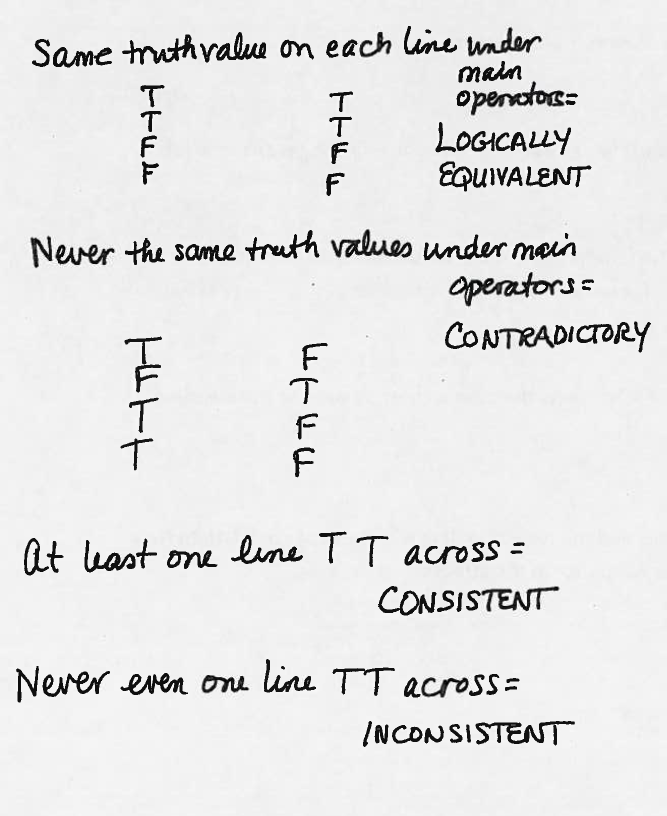 Same truth value on each line under
main
operators=
T T
T T
F F
F F
LOGICALLY
EQUIVALENT
Never the same truth values under main
operators=
CONTRADICTORY
T F
F T
T F
T F
At least one line T T across=
CONSISTENT
Never even one line TT across=
INCONSISTENT